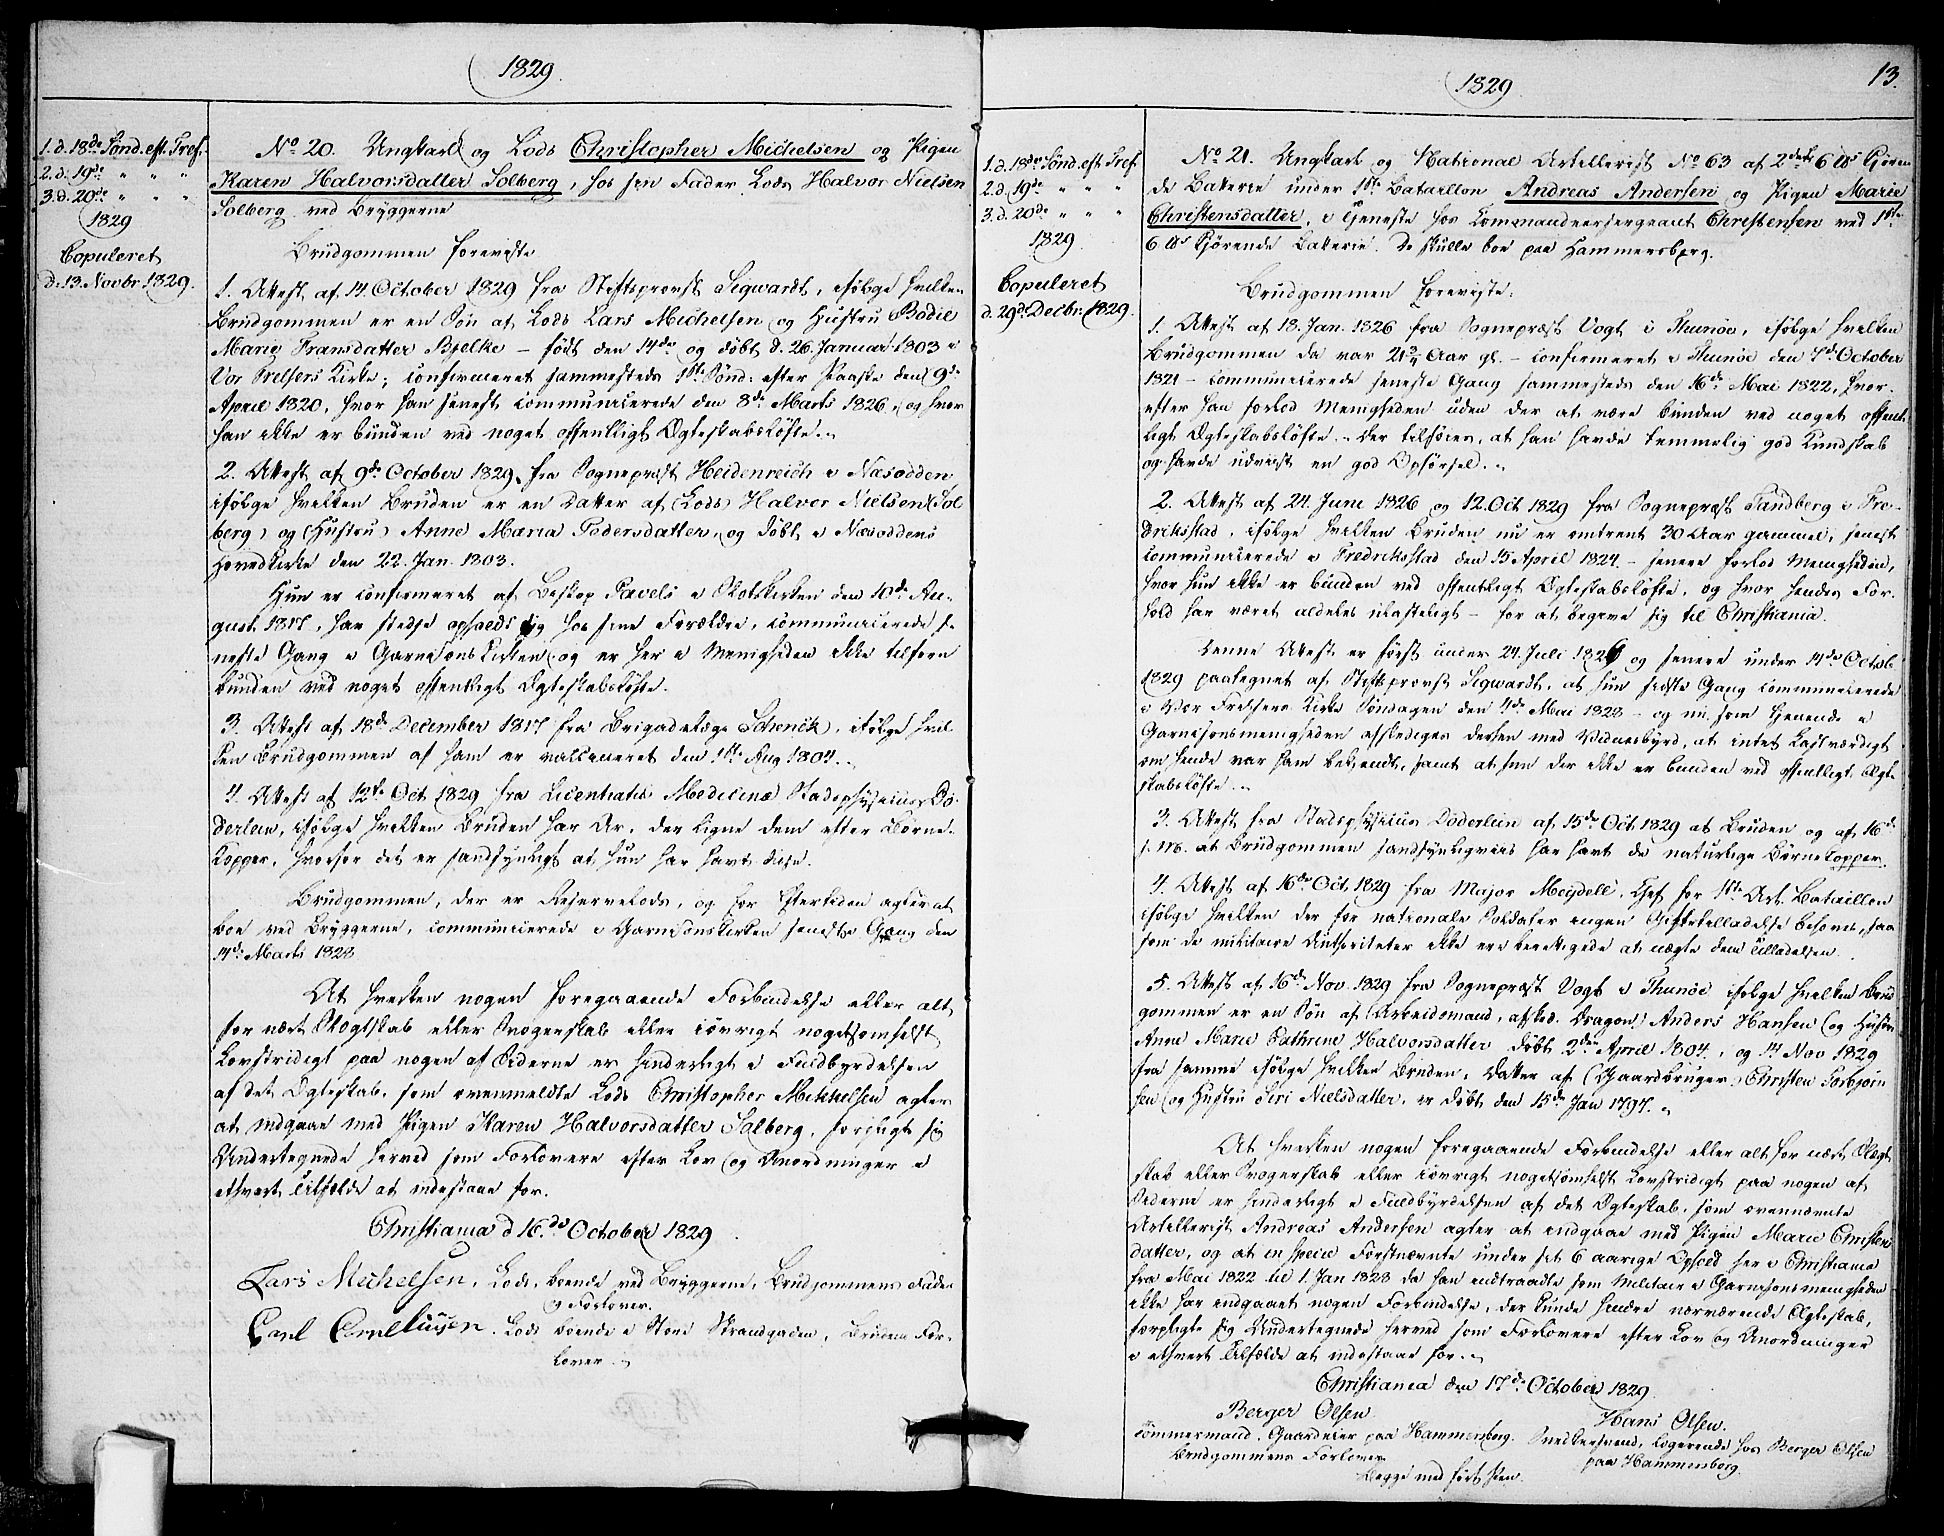 1829.
1. d. 18de Sönd. eft. Tref.
2. d. 19de " " "
3. d. 20de " " "
1829
Copuleret
d. 13. Novbr 1829.
No 20. Ungkarl og Lods Christopher Michelsen og Pigen
Karen Halvorsdatter Solberg, hos sin Fader Lods Halvor Nielsen
Solberg ved Bryggerne
Brudgommen foreviste
1. Attest af 14. October 1829 fra Stiftsprovst Sigwardt, ifölge hvilken
Brudgommen er en Sön af Lods Lars Michelsen og Hustru Bodil
Marie Fransdatter Bjelke – födt den 14de og döbt d. 26. Januar 1803 i
Vor Frelsers Kirke; confirmeret sammesteds 1ste Sönd: efter Paaske den 9de
April 1820, hvor han senest communicerede den 8de Marts 1826, og hvor
han ikke er bunden ved noget offentligt Ægteskabslöfte.
2. Attest af 9de October 1829 fra Sognepræst Heidenreich i Næsodden
ifölge hvilken Bruden er en Datter af (Lods) Halvor Nielsen (Sol
berg) og (Hustru) Anne Maria Pedersdatter, og döbt i Næsoddens
Hovedkirke den 22. Jan. 1803.
Hun er confirmeret af Biskop Pavels i Slotskirken den 10de Au-
gust 1817, har stedse opholdt sig hos sine Forældre, communicerede se
neste Gang i Garnisons Kirken og er her i Menigheden ikke tilforn
bunden ved noget offentligt Ægteskabslöfte.
3. Attest af 18de December 1817 fra Brigadelæge Schenck, ifölge hvil
ken Brudgommen af ham er vaccineret den 1ste Aug 1804.
4. Attest af 12te Oct 1829 fra Licentiatus Medicinæ Stadsphysicus Dö-
derlein, ifölge hvilken Bruden har Ar, der ligne dem efter Börne-
kopper, hvorfor det er sandsynligt at hun har havt disse.
Brudgommen, der er Reservelods, og for Eftertiden agter at
boe ved Bryggerne, communicerede i Garnisonskirken seneste Gang den
14de Marts 1828
At hverken nogen foregaaende Forbindelse eller alt
for nært Slægtskab eller Svogerskab eller iövrigt nogetsomhelst
Lovstridigt paa nogen af Siderne er hinderligt i Fuldbyrdelsen
af det Ægteskab, som ovenmeldte Lods Christopher Mikkelsen agter
at indgaae med Pigen Karen Halvorsdatter Solberg, forpligte sig
Undertegnede herved som Forlovere efter Lov og Anordninger i
ethvert Tilfælde at indestaae for.
Christiania d 16.de October 1829
Lars Michelsen, Lods, boende ved Bryggerne, Brudgommens Fader
og Forlover.
Carl Corneliusen. Lods boende i Store Strandgaden, Brudens For-
lover.
13.
1829
1. d. 18de Sönd. eft Tref
2. d. 19de " " "
3. d. 20de " " "
1829.
Copuleret
d. 29de Decbr. 1829.
No 21. Ungkarl og National Artillerist No 63 af 2det 6 lbs Kjören
de Batterie under 1ste Bataillon Andreas Andersen og Pigen Marie
Christensdatter, i Tjeneste hos Commandeersergeant Christensen ved 1ste
6 lbs Kjörende Batterie. De skulle boe paa Hammersborg.
Brudgommen foreviste:
1. Attest af 18. Jan. 1826 fra Sognepræst Vogt i Thunöe, ifölge hvilken
Brudgommen da var 21 3/4 Aar gl. – confirmeret i Thunöe den 7de October
1821 – communicerede seneste Gang sammesteds den 16de Mai 1822, hvor-
efter han forlod Menigheden uden der at være bunden ved noget offent
ligt Ægteskabslöfte. Der tilföies, at han havde temmelig god Kundskab
og havde udviist en god Opförsel.
2. Attest af 24. Juni 1826 og 12. Oct 1829 fra Sognepræst Tandberg i Fre-
driksstad, ifölge hvilken Bruden nu er omtrent 30 Aar gammel, senest
communicerede i Fredriksstad den 15 April 1824 – senere forlod Menigheden,
hvor hun ikke er bunden ved offentligt Ægteskabslöfte, og hvor hendes For-
hold har været aldeles ulasteligt – for at begive sig til Christiania.
Denne Attest er först under 24. Juli 1826 og senere under 14de Octob
1829 paategnet af Stiftsprovst Sigwardt, at hun sidste Gang communicerede
i Vor Frelsers Kirke Söndagen den 4de Mai 1828 – og nu som tjenende i
Garnisonsmenigheden afskediges dertil med Vidnesbyrd, at intet Lastværdigt
om hende var ham bekjendt, samt at hun der ikke er bunden ved offentligt Ægte
skabslöfte.
3. Attest fra Stadsphysicus Döderlein af 15de Oct. 1829 at Bruden og af 16de
s. M. at Brudgommen sandsynligviis har havt de naturlige Börnekopper.
4. Attest af 16de Oct. 1829 fra Major Meydell, Chef for 1ste Art. Bataillon
ifölge hvilken der for nationale Soldater ingen Giftetilladelse behöves, saa
som de militaire Autoriteter ikke ere berettigede at nægte dem Tilladelsen.
5. Attest af 16de Nov. 1829 fra Sognepræst Vogt i Thunöe ifölge hvilken Brud
gommen er en Sön af (Arbeidsmand, afsked. Dragon) Anders Hansen og Hustru
Anne Marie Cathrine Halvorsdatter döbt 2den April 1804, og 14 Nov 1829
fra samme ifölge hvilken Bruden, Datter af (Gaardbruger) Christen Torbjörn
sen og Hustru Siri Nielsdatter, er döbt den 15de Jan 1797.
At hverken nogen foregaaende Forbindelse eller alt for nært Slægt
skab eller Svogerskab eller iövrigt nogetsomhelst Lovstridigt paa nogen af
Siderne er hinderligt i Fuldbyrdelsen af det Ægteskab, som ovennævnte
Artillerist Andreas Andersen agter at indgaae med Pigen Marie Christens
datter, og at in specie Förstnævnte under sit 6 aarige Ophold her i Christiania
fra Mai 1822 til 1. Jan 1828 da han indtraadte som Militair i Garnisonsmenigheden
ikke har indgaaet nogen Forbindelse, der kunde hindre nærværende Ægteskab,
forpligte sig Undertegnede herved som Forlovere efter Lov og Anordninger
i ethvert Tilfælde at indestaae for.
Christiania den 17de October 1829.
Berger Olsen. Hans Olsen.
Tömmermand, Gaardeier paa Hammersborg. Snedkersvend, logerende hos Berger Olsen
Brudgommens Forlover paa Hammersborg.
Begge med fört Pen.